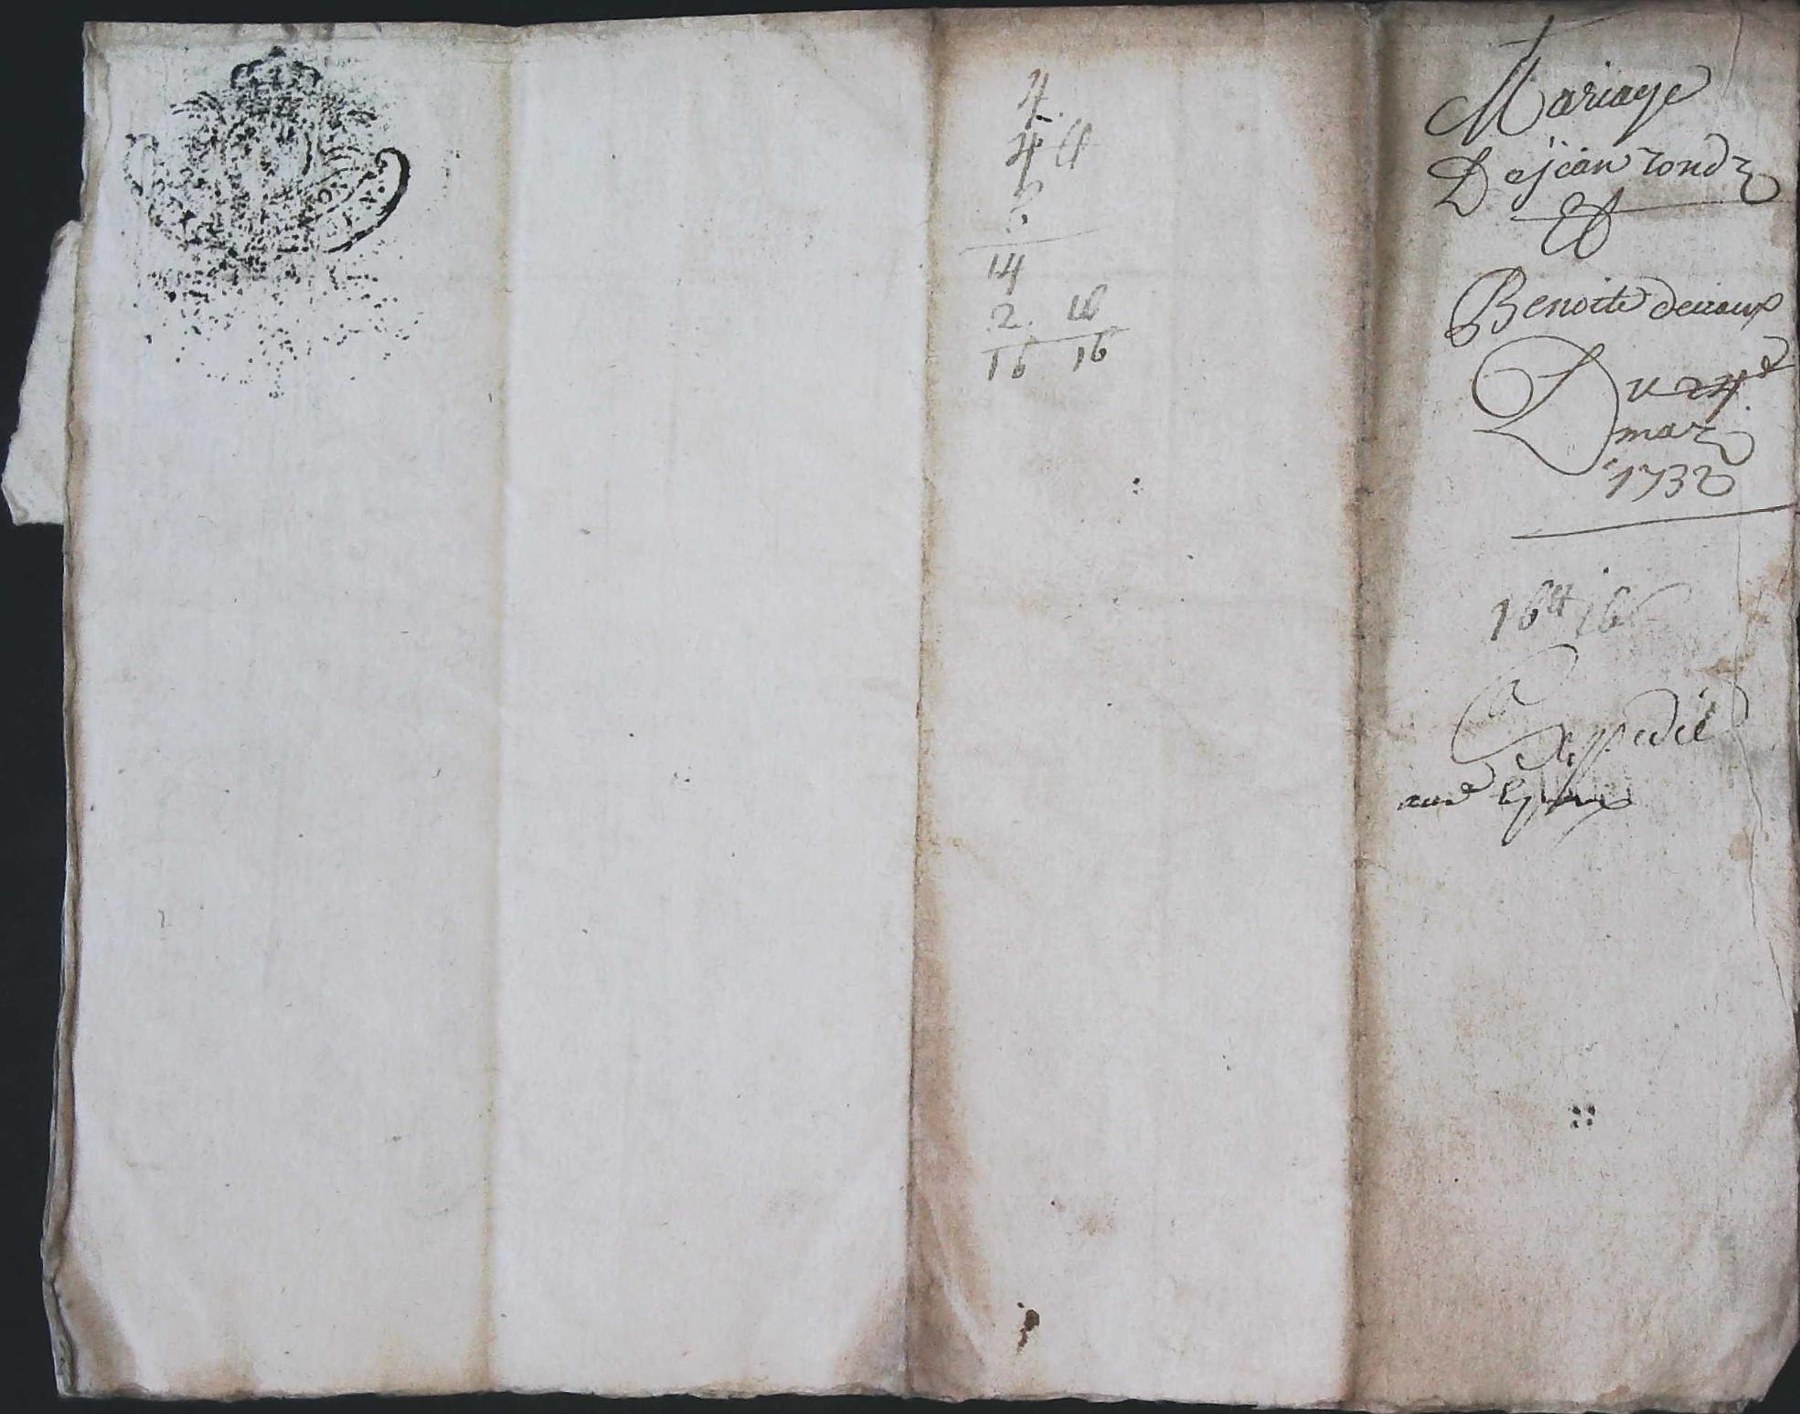 4
4
6
14
2 16
16 16
Mariage
Dejean rond
Et
Benoite devaux
Du 24e
mar
1732
16 16
Expedié
aud Epoux